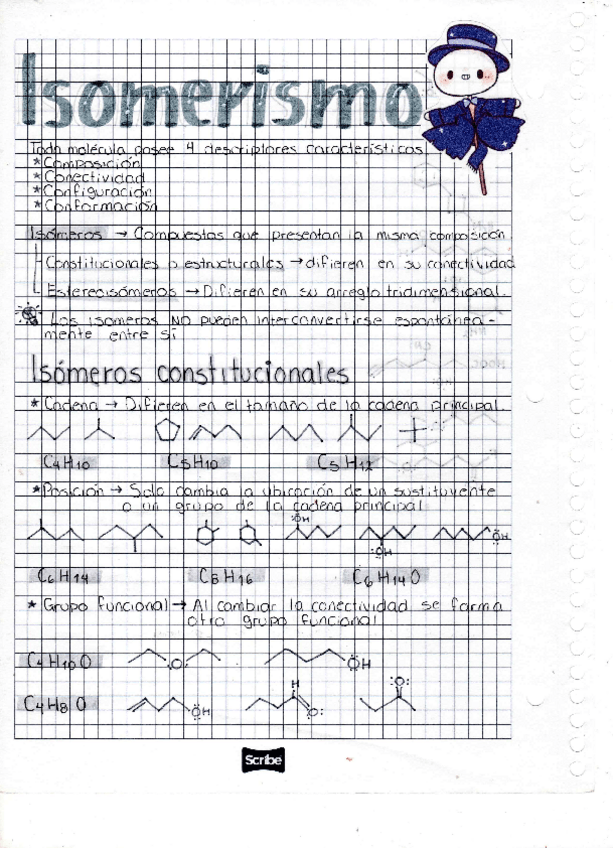 Isomerismo
Toda molécula posee 4 descriptores característicos
* Composición
* Conectividad
* Configuración
* Conformación
Isómeros → Compuestos que presentan la misma composición
Constitucionales o estructurales → difieren en su conectividad
Estereoisómeros → Difieren en su arreglo tridimensional.
Los isomeros NO pueden interconvertirse espontánea-
mente entre sí
Isómeros constitucionales
* Cadena → Difieren en el tamaño de la cadena principal.
C4H10 C5H10 C5H12
* Posición → Solo cambia la ubicación de un sustituyente
o un grupo de la cadena principal
ÖH
ÖH
ÖH
C6H14 C8H16 C6H14O
* Grupo funcional → Al cambiar la conectividad se forma
otro grupo funcional
C4H10O O ÖH
C4H8O ÖH H O: :O:
Scribe